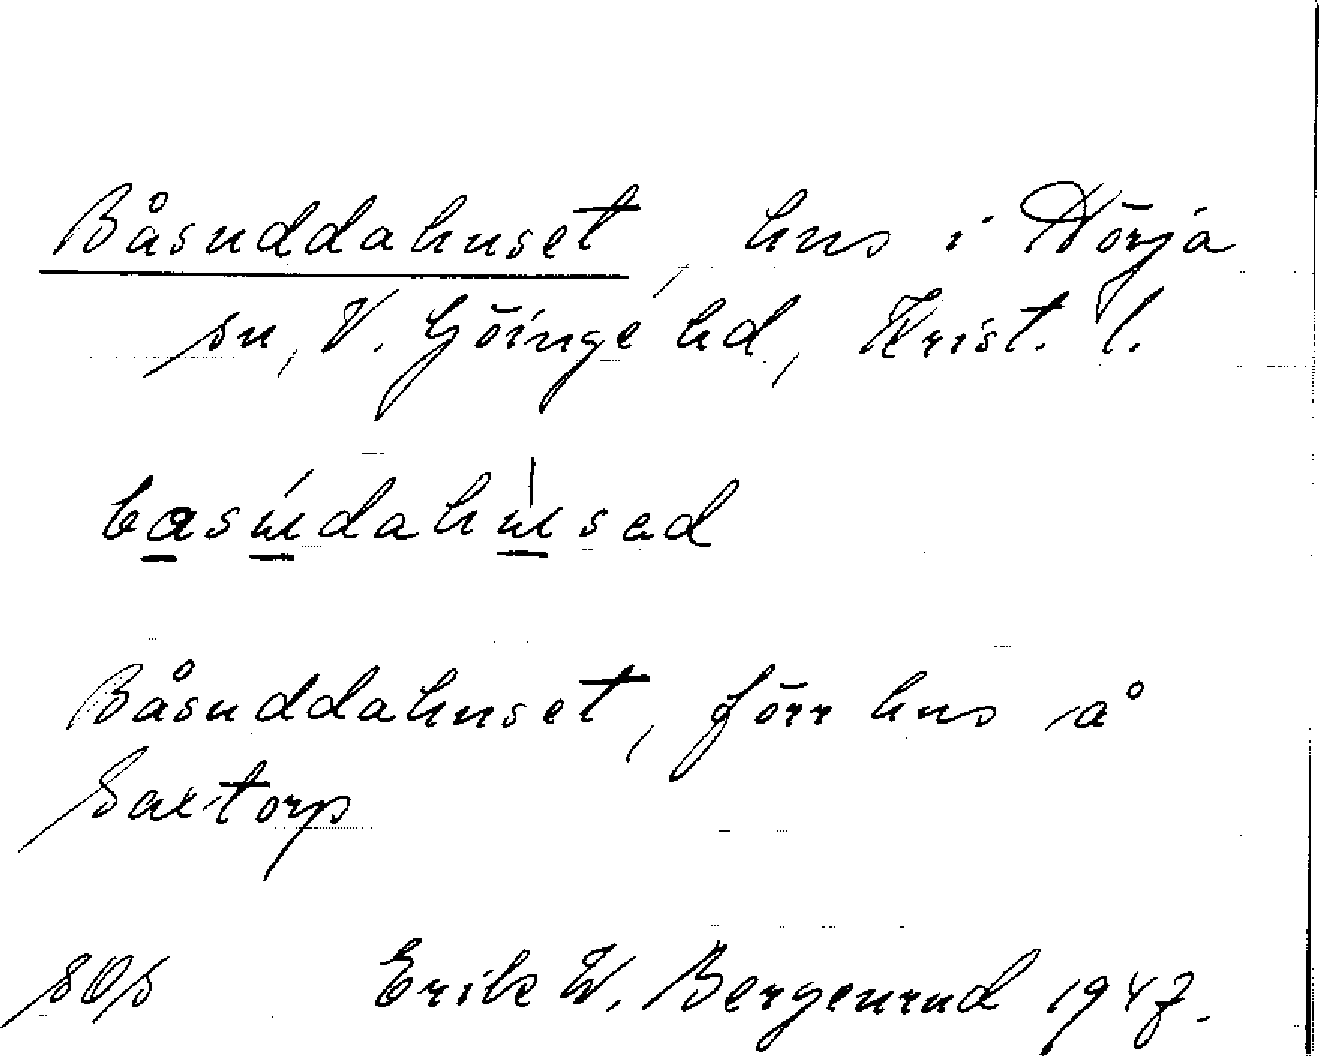 Båsuddahuset, hus i Nörja
sn, V. Göinge hd, Krist. l.
basudahusad
Båsuddahuset, förr hus å
Saxtorp
sOs Erik W. Bergenrud 1947.